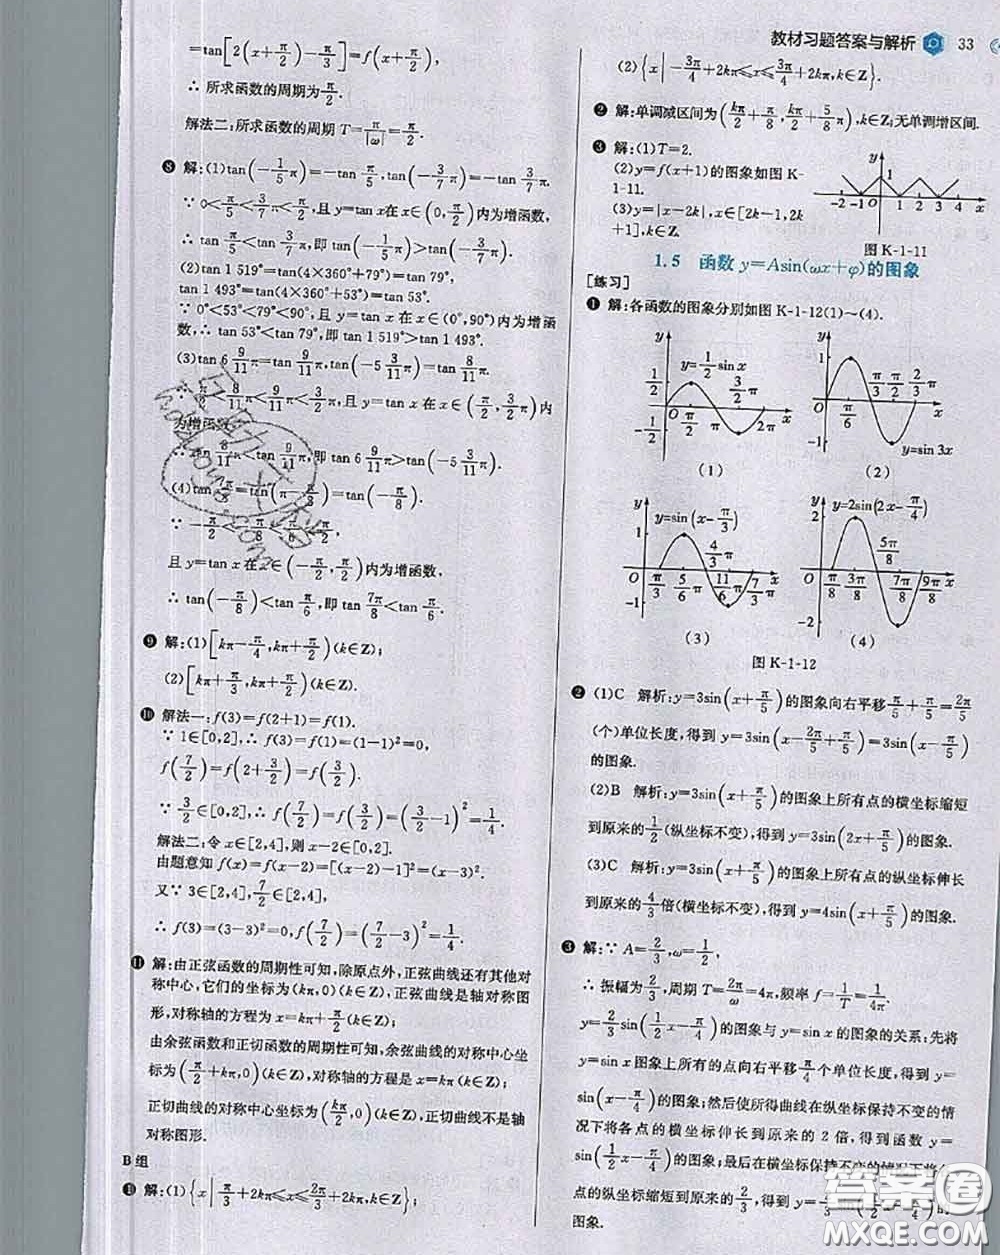 教材习题答案与解析 33
=tan[2(x+π/2)-π/3]=f(x+π/2),
∴ 所求函数的周期为π/2.
解法二:所求函数的周期 T=π/|ω|=π/2.
❽ 解:(1)tan(-1/5π)=-tan π/5,tan(-3/7π)=-tan 3/7π.
∵ 0<π/5<3/7π<π/2,且 y=tan x在 x∈(0,π/2)内为增函数,
∴ tan π/5<tan 3/7π,即 tan(-1/5π)>tan(-3/7π).
(2)tan 1 519°=tan(4×360°+79°)=tan 79°,
tan 1 493°=tan(4×360°+53°)=tan 53°.
∵ 0°<53°<79°<90°,且 y=tan x 在 x∈(0°,90°)内为增函
数,∴ tan 53°<tan 79°,即 tan 1 519°>tan 1 493°.
(3)tan 6 9/11π=tan 9/11π,tan(-5 3/11π)=tan 8/11π.
∵ π/2<8/11π<9/11π<3π/2,且 y=tan x 在 x∈(π/2,3/2π)内
为增函数,
∴ tan 8/11π<tan 9/11π,即 tan 6 9/11π>tan(-5 3/11π).
(4)tan 7π/8=tan(π-π/8)=tan(-π/8).
∵ -π/2<-π/8<π/6<π/2,
且 y=tan x在 x∈(-π/2,π/2)内为增函数,
∴ tan(-π/8)<tan π/6,即 tan 7π/8<tan π/6.
❾ 解:(1)[kπ-π/4,kπ+π/2)(k∈Z).
(2)[kπ+π/3,kπ+π/2)(k∈Z).
❿ 解法一:f(3)=f(2+1)=f(1).
∵ 1∈[0,2],∴ f(3)=f(1)=(1-1)²=0,
f(7/2)=f(2+3/2)=f(3/2).
∵ 3/2∈[0,2],∴ f(7/2)=f(3/2)=(3/2-1)²=1/4.
解法二:令 x∈[2,4],则 x-2∈[0,2].
由题意知 f(x)=f(x-2)=[(x-2)-1]²=(x-3)².
又∵ 3∈[2,4],7/2∈[2,4],
∴ f(3)=(3-3)²=0,f(7/2)=(7/2-3)²=1/4.
⓫ 解:由正弦函数的周期性可知,除原点外,正弦曲线还有其他对
称中心,它们的坐标为(kπ,0)(k∈Z),正弦曲线是轴对称图
形,对称轴的方程为 x=kπ+π/2(k∈Z);
由余弦函数和正切函数的周期性可知,余弦曲线的对称中心坐
标为(π/2+kπ,0)(k∈Z),对称轴的方程是 x=kπ(k∈Z);
正切曲线的对称中心坐标为(kπ/2,0)(k∈Z),正切曲线不是轴
对称图形.
B 组
❶ 解:(1){x|π/3+2kπ≤x≤2π/3+2kπ,k∈Z};
(2){x|-3π/4+2kπ≤x≤3π/4+2kπ,k∈Z}.
❷ 解:单调减区间为(kπ/2+π/8,kπ/2+5/8π),k∈Z;无单调增区间.
❸ 解:(1)T=2.
(2)y=f(x+1)的图象如图 K-
1-11.
(3)y=|x-2k|,x∈[2k-1,2k
+1],k∈Z.
y
1
-2 -1 O 1 2 3 4 x
图 K-1-11
1.5 函数 y=Asin(ωx+φ)的图象
[练习]
❶ 解:各函数的图象分别如图 K-1-12(1)~(4).
y 1/2 y=1/2sin x 3/2π O π/2 π 2π x -1/2
(1)
y 1 π/3 π/2 2/3π O π/6 x -1 y=sin 3x
(2)
y y=sin(x-π/3) 1 4/3π O π/3 5/6π 11/6π 7/3π x -1
(3)
y y=2sin(2x-π/4) 2 5π/8 O π/8 3π/8 7π/8 9π/8 x -2
(4)
图 K-1-12
❷ (1)C 解析:y=3sin(x+π/5)的图象向右平移π/5+π/5=2π/5
(个)单位长度,得到 y=3sin(x-2π/5+π/5)=3sin(x-π/5)
的图象.
(2)B 解析:y=3sin(x+π/5)的图象上所有点的横坐标缩短
到原来的1/2(纵坐标不变),得到 y=3sin(2x+π/5)的图象.
(3)C 解析:y=3sin(x+π/5)的图象上所有点的纵坐标伸长
到原来的4/3倍(横坐标不变),得到 y=4sin(x+π/5)的图象.
❸ 解:∵ A=2/3,ω=1/2,
∴ 振幅为2/3,周期 T=2π/ω=4π,频率 f=1/T=1/4π.
y=2/3sin(1/2x-π/4)的图象与 y=sin x 的图象的关系:先将
y=sin x图象上所有的点向右平移π/4个单位长度,得到函数
y=sin(x-π/4)的图象;然后使所得曲线在纵坐标保持不变的情
况下将各点的横坐标伸长到原来的 2 倍,得到函数 y=
sin(1/2x-π/4)的图象;最后在横坐标保持不变的情况下将各
点的纵坐标缩短到原来的2/3,得到 y=2/3sin(1/2x-π/4)的
图象.
答案圈
MXQE.COM